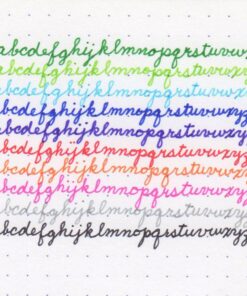 abcdefghijklmnopqrstuvwxy
abcdefghijklmnopqrstuvwxy
abcdefghijklmnopqrstuvwxy
abcdefghijklmnopqrstuvwxyz
abcdefghijklmnopqrstuvwxyz
abcdefghijklmnopqrstuvwxyz
abcdefghijklmnopqrstuvwxyz
abcdefghijklmnopqrstuvwxyz
abcdefghijklmnopqrstuvwxyz
abcdefghijklmnopqrstuvwxyz